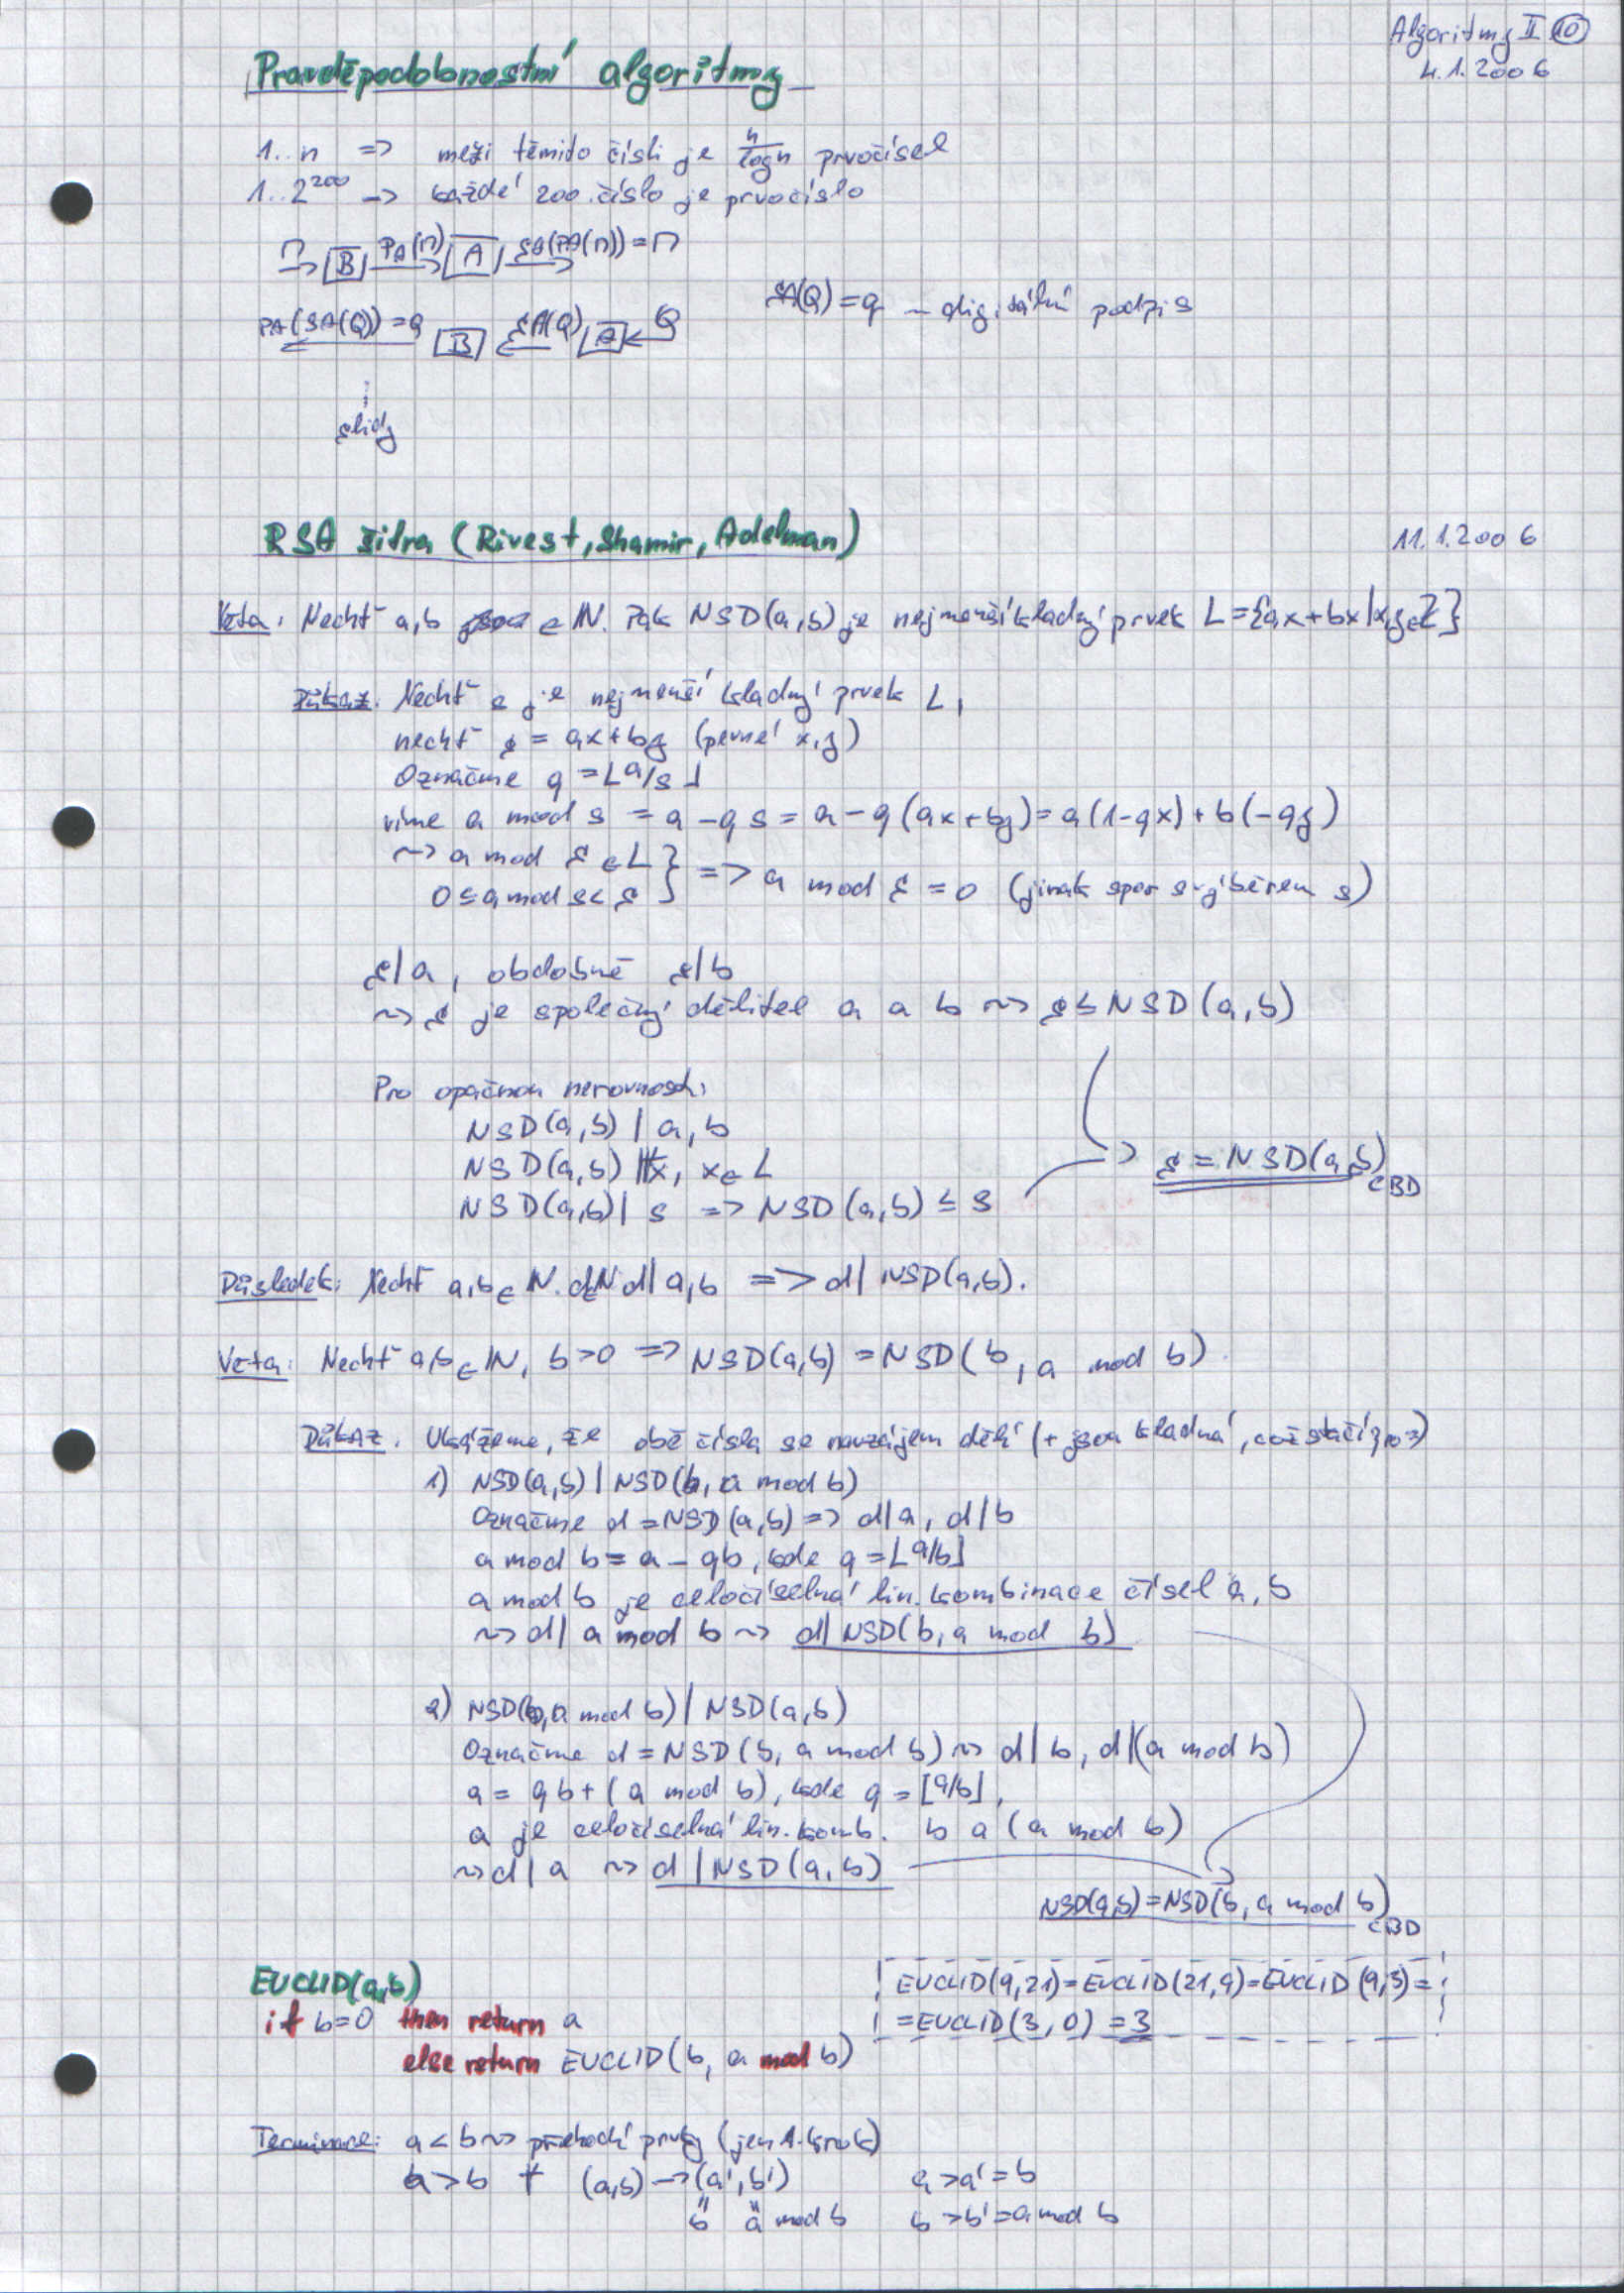 Algoritmy II 10
4.1.2006
Pravděpodobnostní algoritmy
1..n => mezi těmito čísli je n/log n prvočísel
1..2^200 -> každé 200. číslo je prvočíslo
M → B PA(M) → A SA(PA(M)) = M
PA(SA(Q)) = Q ← B ← SA(Q) A ← Q
SA(Q) = q – digitální podpis
slidy
RSA šifra (Rivest, Shamir, Adelman)
11.1.2006
Věta: Nechť a,b ∈ N. Pak NSD(a,b) je nejmenší kladný prvek L = {ax+bx | x,y ∈ Z}
Důkaz: Nechť s je nejmenší kladný prvek L,
nechť s = ax+by (pevné x,y)
Označme q = ⌊a/s⌋
víme a mod s = a - qs = a - q(ax+by) = a(1-qx) + b(-qy)
~> a mod s ∈ L
0 ≤ a mod s < s } => a mod s = 0 (jinak spor s výběrem s)
s|a, obdobně s|b
~> s je společný dělitel a a b ~> s ≤ NSD(a,b)
Pro opačnou nerovnost:
NSD(a,b) | a,b
NSD(a,b) | ∀x, x ∈ L
NSD(a,b) | s => NSD(a,b) ≤ s
s = NSD(a,b)
CBD
Důsledek: Nechť a,b ∈ N. d∈N d| a,b => d| NSD(a,b).
Věta: Nechť a,b ∈ N, b>0 => NSD(a,b) = NSD(b, a mod b).
Důkaz. Ukážeme, že obě čísla se navzájem dělí (+ jsou kladná, což stačí pro =)
1) NSD(a,b) | NSD(b, a mod b)
Označme d = NSD(a,b) => d|a, d|b
a mod b = a - qb, kde q = ⌊a/b⌋
a mod b je celočíselná lin. kombinace čísel a, b
~> d| a mod b ~> d| NSD(b, a mod b)
2) NSD(b, a mod b) | NSD(a,b)
Označme d = NSD(b, a mod b) ~> d|b, d|(a mod b)
a = qb + (a mod b), kde q = ⌊a/b⌋,
a je celočíselná lin. komb. b a (a mod b)
~> d|a ~> d | NSD(a,b)
NSD(a,b) = NSD(b, a mod b)
CBD
EUCLID(a,b)
if b=0 then return a
else return EUCLID(b, a mod b)
EUCLID(9,21) = EUCLID(21,9) = EUCLID(9,3) =
= EUCLID(3,0) = 3
Terminace: a < b ~> přehodí prvky (jen 1. krok)
a > b † (a,b) -> (a',b') a > a' = b
b a mod b b > b' = a mod b